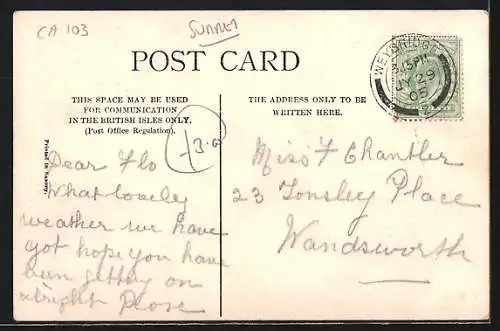 CA 103
SURREY
POST CARD
THIS SPACE MAY BE USED
FOR COMMUNICATION
IN THE BRITISH ISLES ONLY.
(Post Office Regulation).
THE ADDRESS ONLY TO BE
WRITTEN HERE.
WEYBRIDGE
29
05
Printed in Saxony.
Dear Flo
What lovely
weather we have
got hope you have
been getting on
alright
Miss F Chantler
23 Tonsley Place
Wandsworth